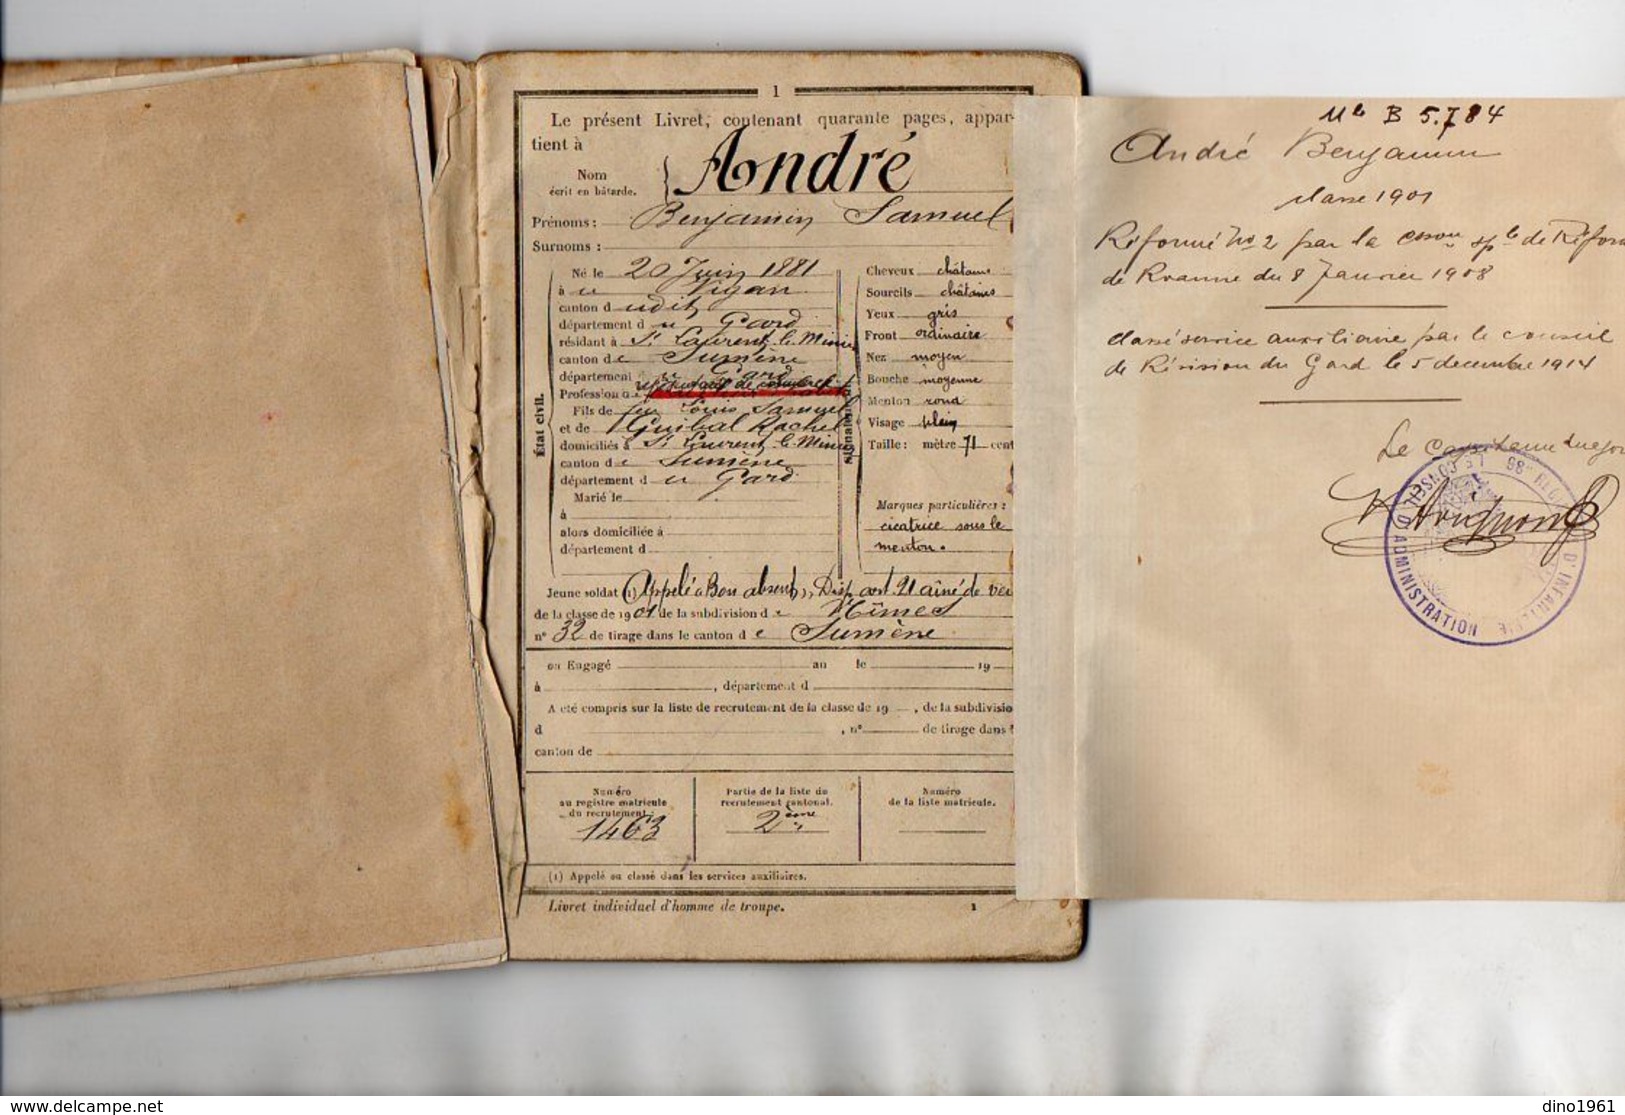 1
Le présent Livret, contenant quarante pages, appar-
tient à
Nom
écrit en bâtarde.
André
Prénoms : Benjamin Samuel
Surnoms :
État civil.
Né le 20 Juin 1881
à u Vigan
canton d udit
département d u Gard
résidant à St Laurent le Minier
canton de Sumène
département u Gard
Profession d
Fils de feu Louis Samuel
et de Guibal Rachel
domiciliés à St Laurent le Minier
canton de Sumène
département d u Gard
Marié le
à
alors domiciliée à
département d
Signalement
Cheveux châtains
Sourcils châtains
Yeux gris
Front ordinaire
Nez moyen
Bouche moyenne
Menton rond
Visage plein
Taille : mètre 71 cent
Marques particulières :
cicatrice sous le
menton.
Jeune soldat (1) Appelé "Bon absent", Disp. art. 21 aîné de
de la classe de 1901 de la subdivision de Nîmes
n° 32 de tirage dans le canton de Sumène
ou Engagé au le 19
à , département d
A été compris sur la liste de recrutement de la classe de 19 , de la subdivisio
d , n° de tirage dans l
canton de
Numéro
au registre matricule
du recrutement.
1463
Partie de la liste de
recrutement cantonal.
2ème
Numéro
de la liste matricule.
(1) Appelé ou classé dans les services auxiliaires.
Livret individuel d'homme de troupe.
1
Mle B 5.784
André Benjamin
classe 1901
Réformé No 2 par la Cson sple de Réfor
de Roanne du 8 Janvier 1908
classé service auxiliaire par le conseil
de Révision du Gard le 5 decembre 1914
Le Capitaine
LE CONSEIL D'ADMINISTRATION
98e D'INFANTERIE
delcampe.net
dino1961